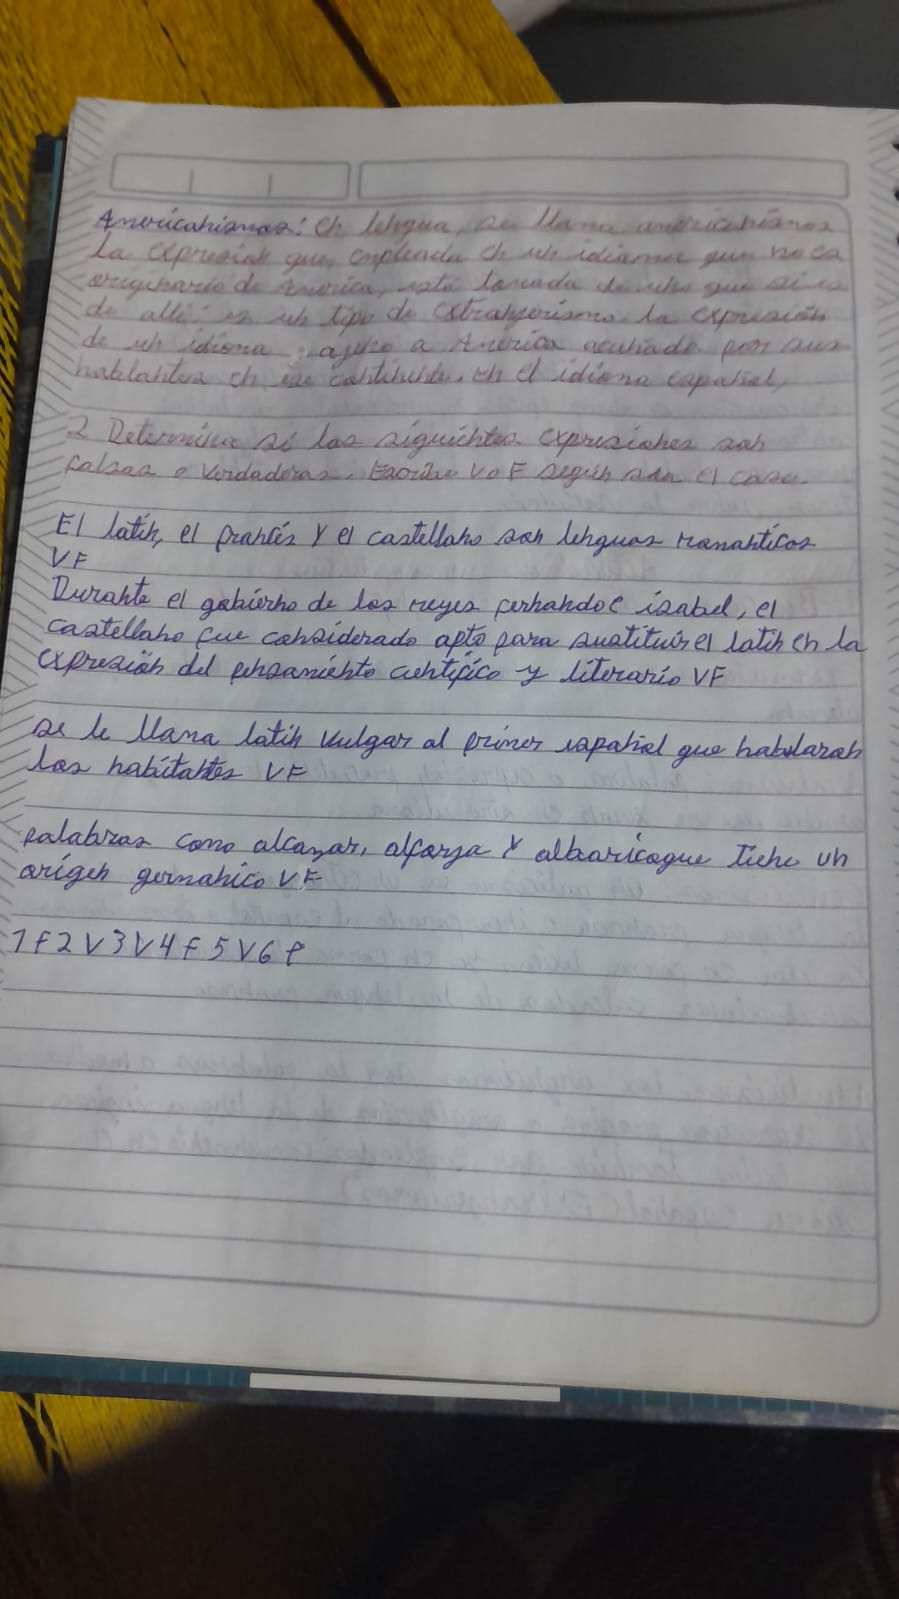 Americanismos: En lengua, se llama americanismos
La expresión que, empleada en un idioma que no es
originario de America, está tomada de uno que si es
de alli; es un tipo de extranjerismo. la expresión
de un idioma, ajeno a America acuñado por sus
hablantes en ese continente. en el idioma español,
2 Determina si las siguientes expresiones son
falsas o verdaderas. Escribe V o F según sea el caso.
El latin, el francés y el castellano son lenguas romanticos
VF
Durante el gobierno de los reyes fernando e isabel, el
castellano fue considerado apto para sustituir el latin en la
expresión del pensamiento cientifico y literario VF
se le llama latin vulgar al primer español que hablaron
los habitantes VF
palabras como alcazar, alforja y albaricoque tiene un
origen germanico VF
1 F 2 V 3 V 4 F 5 V 6 F